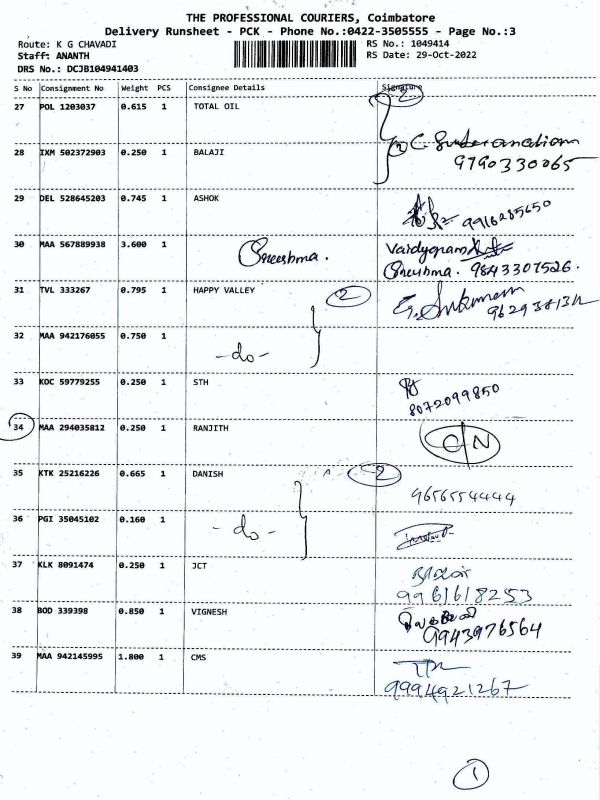 THE PROFESSIONAL COURIERS, Coimbatore
Delivery Runsheet - PCK - Phone No.:0422-3505555 - Page No.:3
Route: K G CHAVADI RS No.: 1049414
Staff: ANANTH RS Date: 29-Oct-2022
DRS No.: DCJB104941403
S No Consignment No Weight PCS Consignee Details Signature
2
27 POL 1203037 0.615 1 TOTAL OIL
28 IXM 502372903 0.250 1 BALAJI
9790330065
29 DEL 528645203 0.745 1 ASHOK
9916285650
30 MAA 567889938 3.600 1 Sneeshma. Vaidyagram
Sneeshma. 9843307526.
31 TVL 333267 0.795 1 HAPPY VALLEY 2
32 MAA 942176055 0.750 1
-do-
33 KOC 59779255 0.250 1 STH
8072099850
34 MAA 294035812 0.250 1 RANJITH C/N
35 KTK 25216226 0.665 1 DANISH 2
9656554444
36 PGI 35045102 0.160 1 -do-
37 KLK 8091474 0.250 1 JCT
9961618253
38 BOD 339398 0.850 1 VIGNESH
9943976564
39 MAA 942145995 1.800 1 CMS
9994921267
1